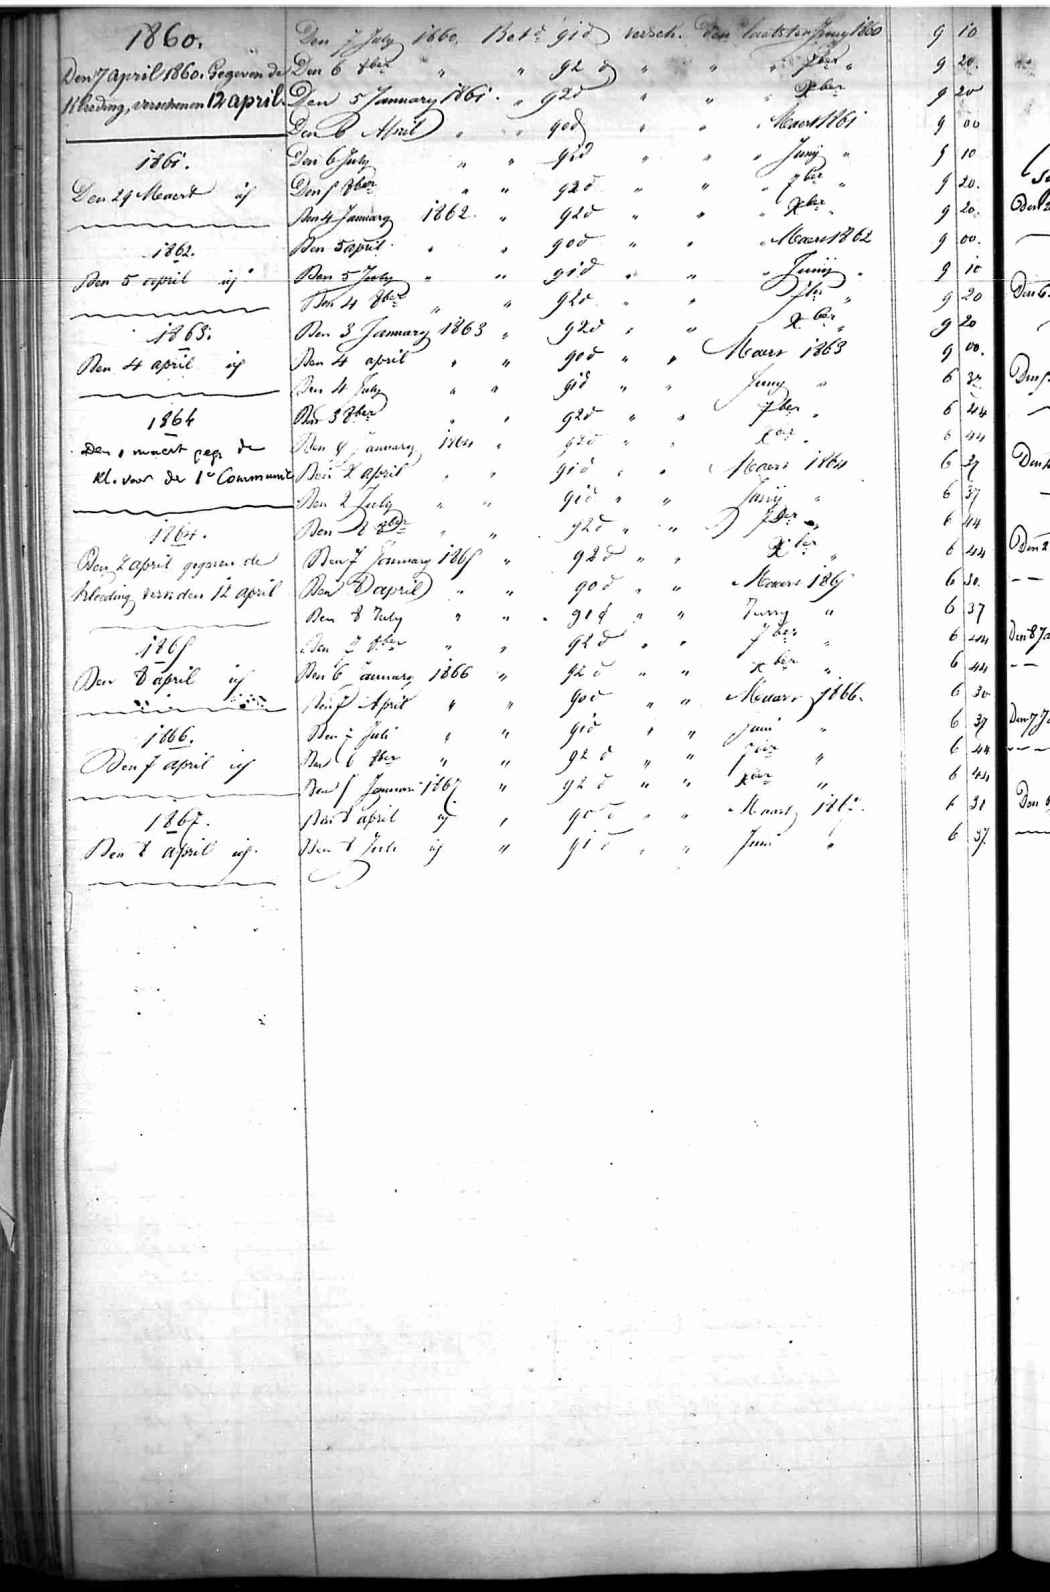 1860.
Den 7 april 1860. Gegeven de
Kleeding, verschenen 12 april.
1861.
Den 29 Maert id
1862.
Den 5 april id
1863.
Den 4 april id
1864
Den maert geg. de
kl. voor de 1e Communie
1864.
Den 2 april gegeven de
kleeding versch den 12 april
1865
Den 8 april id
1866.
Den 7 april id
1867.
Den 8 april id.
Den 7 July 1860. Bet. 91 d versch. den laatsten Juny 1860 9 10
Den 6 8ber " " 92 d " " " 7ber " 9 20.
Den 5 January 1861. " 92 d " " " Xber 9 20
Den 6 April " " 90 d " " Maert 1861 9 00
Den 6 July " " 91 d " " " Juny " 9 10
Den 5 8ber " " 92 d " " 7ber " 9 20.
Den 4 January 1862. " 92 d " " Xber " 9 20.
Den 5 april " " 90 d " " Maert 1862 9 00.
Den 5 July " " 91 d " " " Juny " 9 10
Den 4 8ber " " 92 d " " 7ber " 9 20
Den 3 January 1863 " 92 d " " Xber " 9 20
Den 4 april " " 90 d " " Maert 1863 9 00.
Den 4 July " " 91 d " " Juny " 6 37
Den 3 8ber " " 92 d " " 7ber " 6 44
Den January 1864 " 92 d " " Xber " 6 44
Den 2 april " " 91 d " " Maert 1864 6 37
Den 2 July " " 91 d " " Juny " 6 37
Den 8 8ber " " 92 d " " 7ber " 6 44
Den 7 January 1865 " 92 d " " Xber " 6 44
Den 8 april " " 90 d " " Maert 1865 6 30.
Den 8 July " " 91 d " " Juny " 6 37
Den 8ber " " 92 d " " 7ber " 6 44
Den 6 January 1866 " 92 d " " Xber " 6 44
Den 7 April " " 90 d " " Maart 1866. 6 30
Den 7 Juli " " 91 d " " Juni " 6 37
Den 6 8ber " " 92 d " " 7ber " 6 44
Den 5 Januari 1867 " 92 d " " Xber " 6 44
Den 8 april id " 90 d " " Maart 1867. 6 30
Den 8 Juli id " 91 d " " Juni " 6 37.